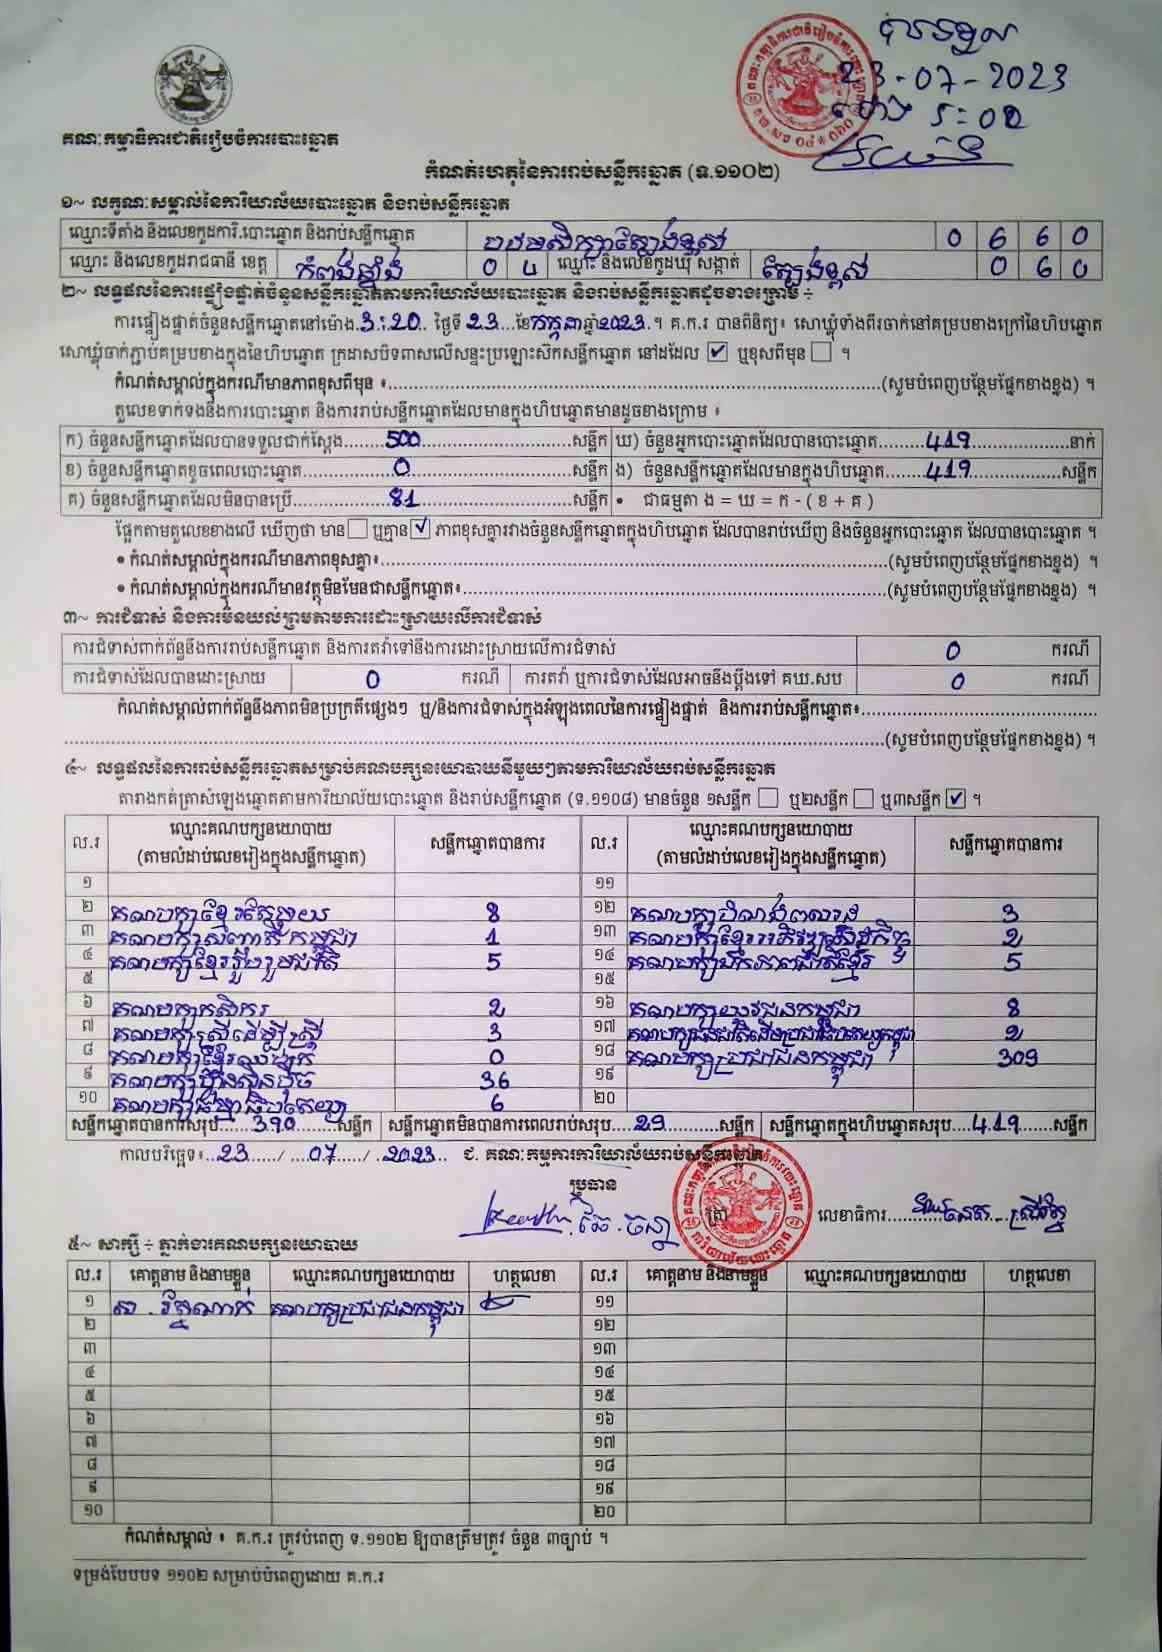 បានទទួល
23-07-2023
ម៉ោង ៖ 02
គណៈកម្មាធិការជាតិរៀបចំការបោះឆ្នោត
កំណត់ហេតុនៃការរាប់សន្លឹកឆ្នោត (ទ.១១០២)
១~ លក្ខណៈសម្គាល់នៃការិយាល័យបោះឆ្នោត និងរាប់សន្លឹកឆ្នោត
ឈ្មោះទីតាំង និងលេខកូដការិ.បោះឆ្នោត និងរាប់សន្លឹកឆ្នោត បឋមសិក្សាត្បែងខ្ពស់ 0 6 6 0
ឈ្មោះ និងលេខកូដរាជធានី ខេត្ត កំពង់ឆ្នាំង 0 4 ឈ្មោះ និងលេខកូដឃុំ សង្កាត់ ត្បែងខ្ពស់ 0 6 0
២~ លទ្ធផលនៃការផ្ទៀងផ្ទាត់ចំនួនសន្លឹកឆ្នោតតាមការិយាល័យបោះឆ្នោត និងរាប់សន្លឹកឆ្នោតដូចខាងក្រោម ÷
ការផ្ទៀងផ្ទាត់ចំនួនសន្លឹកឆ្នោតនៅម៉ោង 3:20 ថ្ងៃទី 23 ខែ កក្កដា ឆ្នាំ 2023 ។ គ.ក.រ បានពិនិត្យ៖ សោឃ្លុំទាំងពីរចាក់នៅគម្របខាងក្រៅនៃហិបឆ្នោត
សោឃ្លុំចាក់ភ្ជាប់គម្របខាងក្នុងនៃហិបឆ្នោត ក្រដាសបិទពាសលើសន្ទះប្រឡោះស៊កសន្លឹកឆ្នោត នៅដដែល ✓ ឬខុសពីមុន ។
កំណត់សម្គាល់ក្នុងករណីមានភាពខុសពីមុន ៖ (សូមបំពេញបន្ថែមផ្នែកខាងខ្នង) ។
តួលេខទាក់ទងនឹងការបោះឆ្នោត និងការរាប់សន្លឹកឆ្នោតដែលមានក្នុងហិបឆ្នោតមានដូចខាងក្រោម ៖
ក) ចំនួនសន្លឹកឆ្នោតដែលបានទទួលជាក់ស្តែង 500 សន្លឹក ឃ) ចំនួនអ្នកបោះឆ្នោតដែលបានបោះឆ្នោត 419 នាក់
ខ) ចំនួនសន្លឹកឆ្នោតខូចពេលបោះឆ្នោត 0 សន្លឹក ង) ចំនួនសន្លឹកឆ្នោតដែលមានក្នុងហិបឆ្នោត 419 សន្លឹក
គ) ចំនួនសន្លឹកឆ្នោតដែលមិនបានប្រើ 81 សន្លឹក • ជាធម្មតា ង = ឃ = ក - ( ខ + គ )
ផ្អែកតាមតួលេខខាងលើ ឃើញថា មាន ឬគ្មាន ✓ ភាពខុសគ្នារវាងចំនួនសន្លឹកឆ្នោតក្នុងហិបឆ្នោត ដែលបានរាប់ឃើញ និងចំនួនអ្នកបោះឆ្នោត ដែលបានបោះឆ្នោត ។
• កំណត់សម្គាល់ក្នុងករណីមានភាពខុសគ្នា៖ (សូមបំពេញបន្ថែមផ្នែកខាងខ្នង) ។
• កំណត់សម្គាល់ក្នុងករណីមានវត្ថុមិនមែនជាសន្លឹកឆ្នោត៖ (សូមបំពេញបន្ថែមផ្នែកខាងខ្នង) ។
៣~ ការជំទាស់ និងការមិនយល់ព្រមតាមការដោះស្រាយលើការជំទាស់
ការជំទាស់ពាក់ព័ន្ធនឹងការរាប់សន្លឹកឆ្នោត និងការតវ៉ាទៅនឹងការដោះស្រាយលើការជំទាស់ 0 ករណី
ការជំទាស់ដែលបានដោះស្រាយ 0 ករណី ការតវ៉ា ឬការជំទាស់ដែលអាចនឹងប្តឹងទៅ គឃ.សប 0 ករណី
កំណត់សម្គាល់ពាក់ព័ន្ធនឹងភាពមិនប្រក្រតីផ្សេងៗ ឬ/និងការជំទាស់ក្នុងអំឡុងពេលនៃការផ្ទៀងផ្ទាត់ និងការរាប់សន្លឹកឆ្នោត៖
(សូមបំពេញបន្ថែមផ្នែកខាងខ្នង) ។
៤~ លទ្ធផលនៃការរាប់សន្លឹកឆ្នោតសម្រាប់គណបក្សនយោបាយនីមួយៗតាមការិយាល័យរាប់សន្លឹកឆ្នោត
តារាងកត់ត្រាសំឡេងឆ្នោតតាមការិយាល័យបោះឆ្នោត និងរាប់សន្លឹកឆ្នោត (ទ.១១០៨) មានចំនួន ១សន្លឹក ឬ២សន្លឹក ឬ៣សន្លឹក ✓ ។
ល.រ ឈ្មោះគណបក្សនយោបាយ (តាមលំដាប់លេខរៀងក្នុងសន្លឹកឆ្នោត) សន្លឹកឆ្នោតបានការ ល.រ ឈ្មោះគណបក្សនយោបាយ (តាមលំដាប់លេខរៀងក្នុងសន្លឹកឆ្នោត) សន្លឹកឆ្នោតបានការ
១ ១១
២ គណបក្សខ្មែរតែមួយ 8 ១២ គណបក្សសំណង់ពលរដ្ឋ 3
៣ គណបក្សសញ្ជាតិកម្ពុជា 1 ១៣ គណបក្សខ្មែរអភិវឌ្ឍន៍សេដ្ឋកិច្ច 2
៤ គណបក្សខ្មែររួបរួមជាតិ 5 ១៤ គណបក្សឯកភាពជាតិខ្មែរ 5
៥ ១៥
៦ គណបក្សកសិករ 2 ១៦ គណបក្សយុវជនកម្ពុជា 8
៧ គណបក្សស្ត្រីដើម្បីស្ត្រី 3 ១៧ គណបក្សជនជាតិដើមប្រជាធិបតេយ្យកម្ពុជា 2
៨ គណបក្សខ្មែរឈប់ក្រ 0 ១៨ គណបក្សប្រជាជនកម្ពុជា 309
៩ គណបក្សហ្វ៊ុនស៊ិនប៉ិច 36 ១៩
១០ គណបក្សធម្មាធិបតេយ្យ 6 ២០
សន្លឹកឆ្នោតបានការសរុប 390 សន្លឹក សន្លឹកឆ្នោតមិនបានការពេលរាប់សរុប 29 សន្លឹក សន្លឹកឆ្នោតក្នុងហិបឆ្នោតសរុប 419 សន្លឹក
កាលបរិច្ឆេទ៖ 23 / 07 / 2023 ជ. គណៈកម្មការការិយាល័យរាប់សន្លឹកឆ្នោត
ប្រធាន
ឆៃ . ចន្ថា (ត្រា) លេខាធិការ
៥~ សាក្សី ÷ ភ្នាក់ងារគណបក្សនយោបាយ
ល.រ គោត្តនាម និងនាមខ្លួន ឈ្មោះគណបក្សនយោបាយ ហត្ថលេខា ល.រ គោត្តនាម និងនាមខ្លួន ឈ្មោះគណបក្សនយោបាយ ហត្ថលេខា
១ សា . រ័ត្នណាក់ គណបក្សប្រជាជនកម្ពុជា ១១
២ ១២
៣ ១៣
៤ ១៤
៥ ១៥
៦ ១៦
៧ ១៧
៨ ១៨
៩ ១៩
១០ ២០
កំណត់សម្គាល់ ៖ គ.ក.រ ត្រូវបំពេញ ទ.១១០២ ឱ្យបានត្រឹមត្រូវ ចំនួន ៣ច្បាប់ ។
ទម្រង់បែបបទ ១១០២ សម្រាប់បំពេញដោយ គ.ក.រ